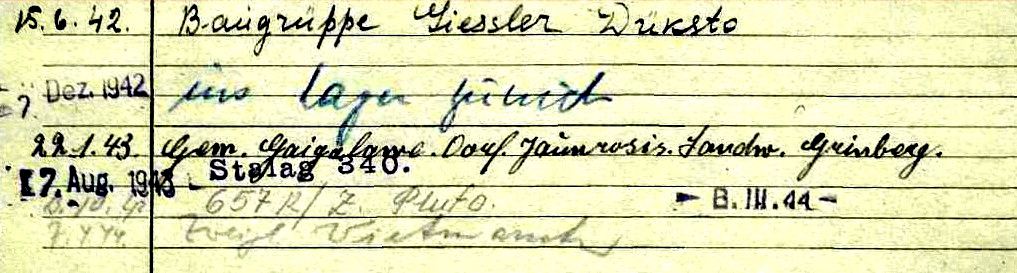 15.6.42. Baugrüppe Giessler Düksto
7 Dez. 1942 ins Lager zurück
22.1.43. Gem. Gaigalawe. Dorf. Jaunrosis. Landw. Grinberg.
7. Aug. 1943 - Stalag 340.
657 R/Z. Pluto. - 8.III.44 -